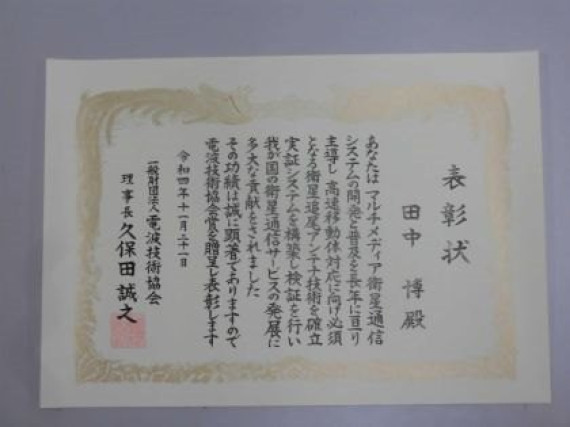 表彰状
田中 博 殿
あなたは マルチメディア衛星通信
システムの開発と普及を長年に亘り
主導し 高速移動体対応に向け必須
となる衛星追尾アンテナ技術を確立
実証システムを構築し検証を行い
我が国の衛星通信サービスの発展に
多大な貢献をされました
その功績は誠に顕著でありますので
電波技術協会賞を贈呈し表彰します
令和四年十一月二十一日
一般財団法人 電波技術協会
理事長 久保田 誠之